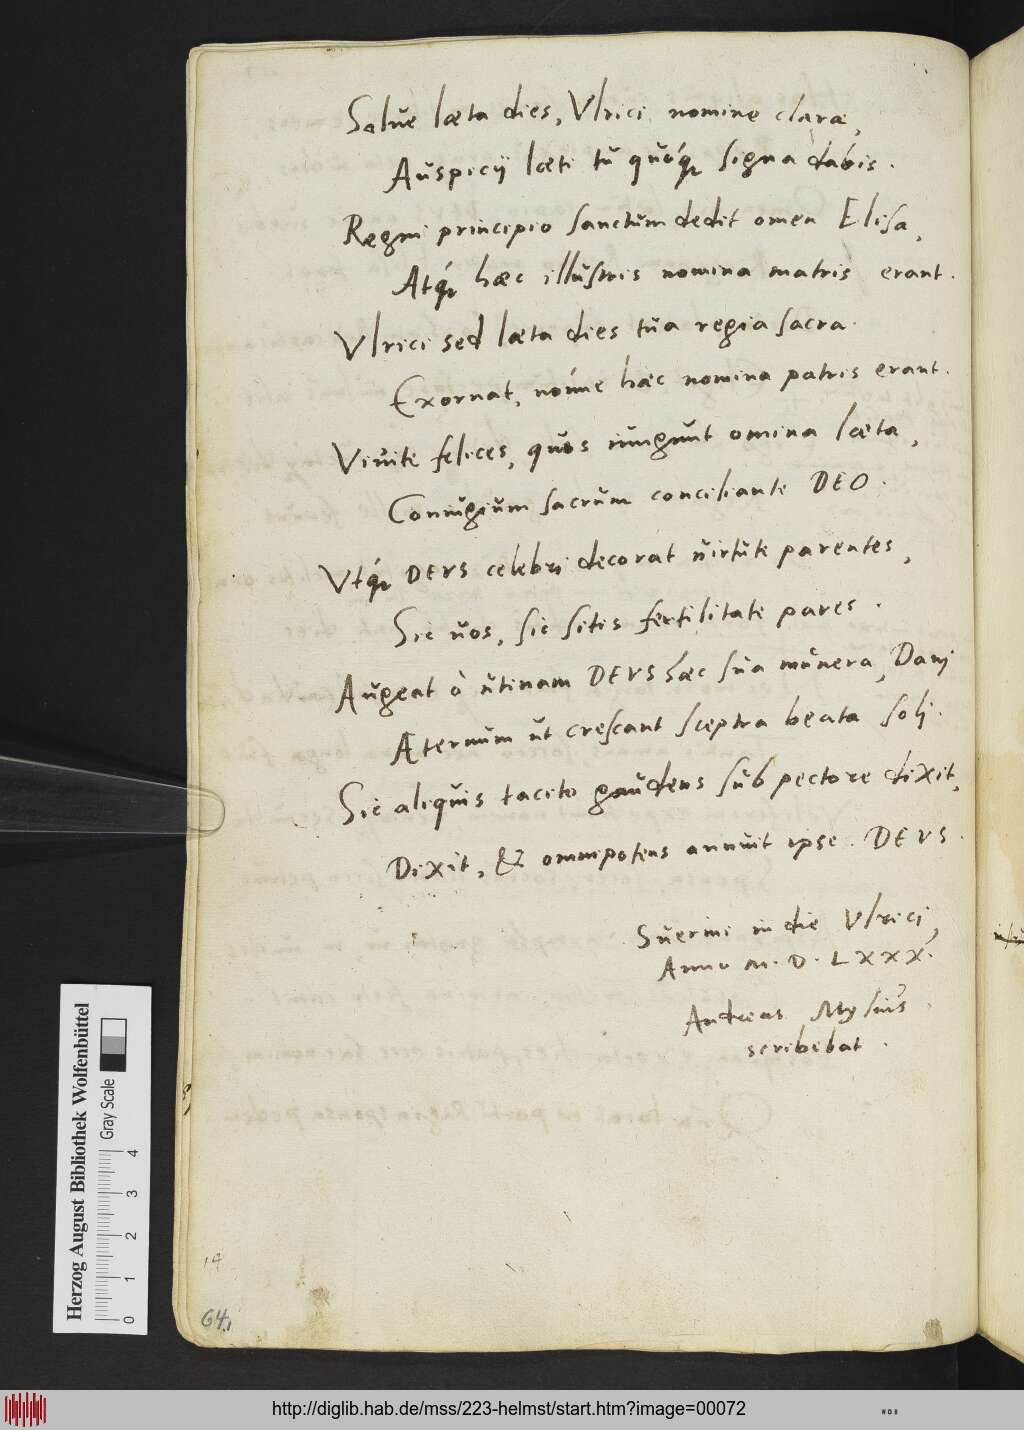 Salue læta dies, Vlrici nomine clara,
Auspicij læti tu quóq; signa dabis.
Regni principio sanctum dedit omen Elisa,
Atq́; hæc illustris nomina matris erant.
Vlrici sed læta dies tua regia sacra
Exornat, nónne hæc nomina patris erant.
Viuite felices, quos iungunt omina læta,
Coniugium sacrum conciliante DEO.
Vtq́; DEVS celebri decorat uirtute parentes,
Sic uos, sic sitis fertilitate pares.
Augeat ô utinam DEVS hæc sua munera, Dani
Æternum ut crescant sceptra beata soli.
Sic aliquis tacito gaudens sub pectore dixit,
Dixit, & omnipotens annuit ipse DEVS.
Suerini in die Vlrici,
Anno M. D. LXXX.
Andreas Mylius
scribebat.
14
64
Herzog August Bibliothek Wolfenbüttel
Gray Scale
0 1 2 3 4
http://diglib.hab.de/mss/223-helmst/start.htm?image=00072